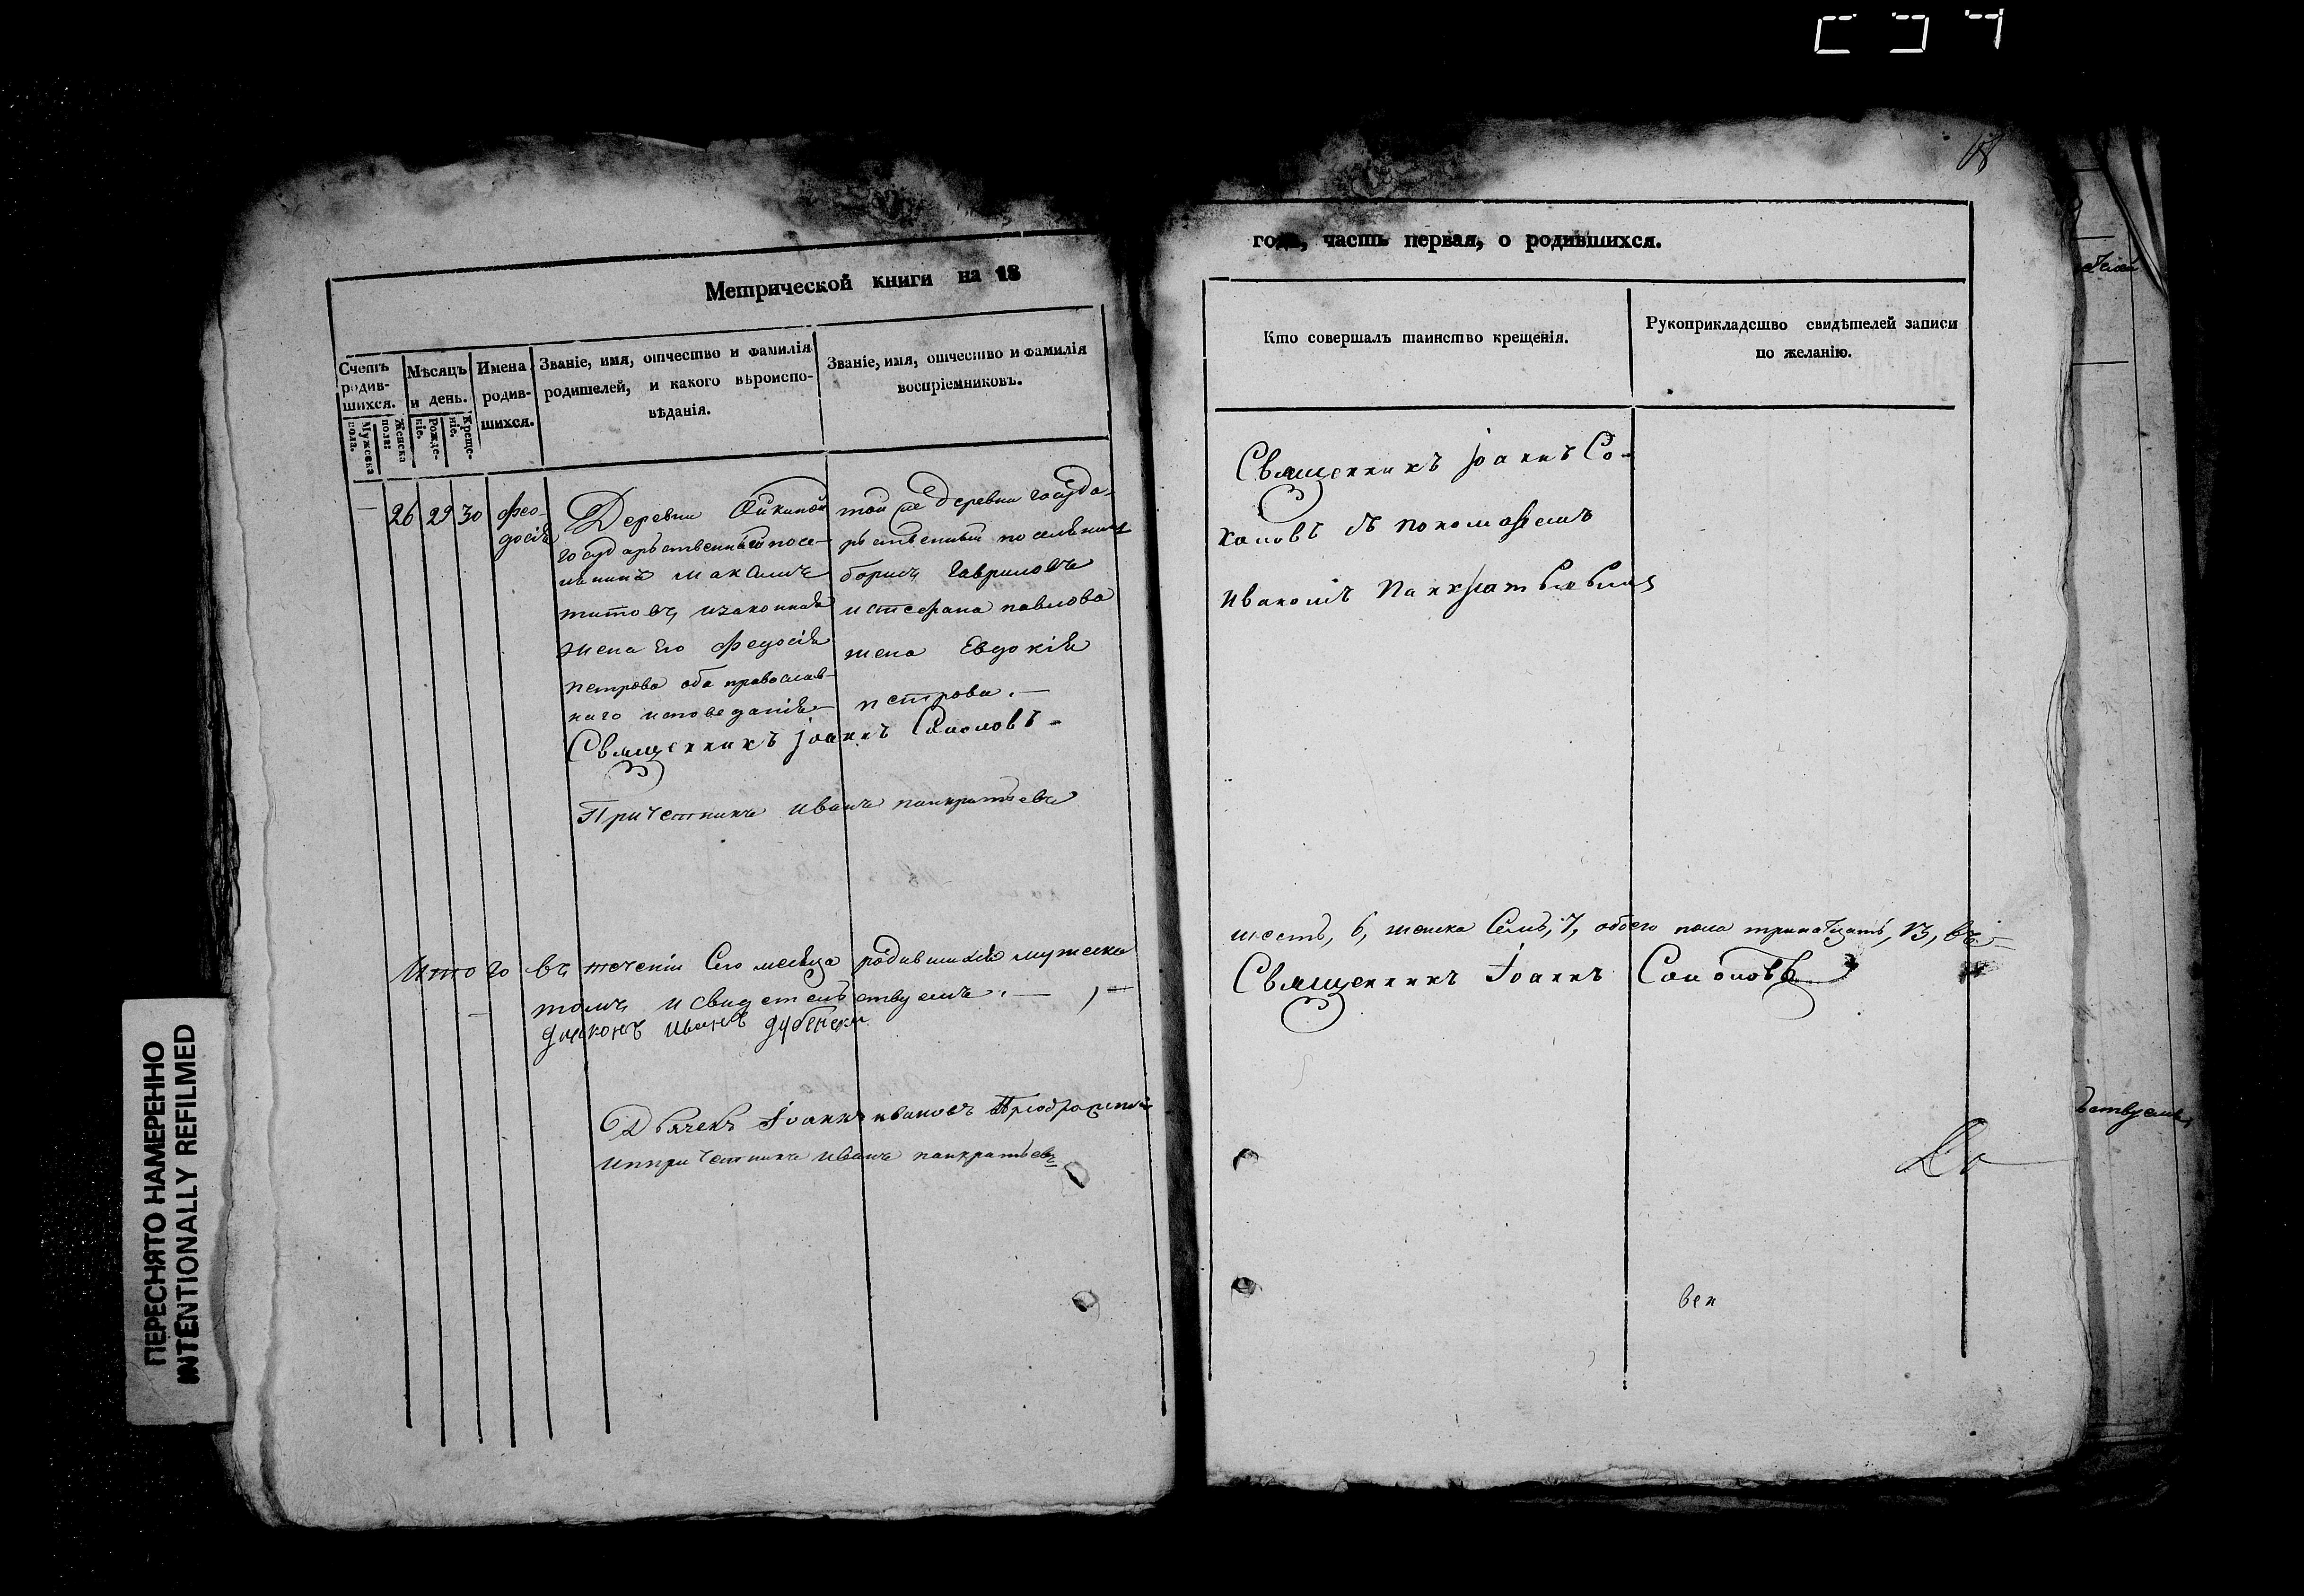 Метрической книги на 18
Счетъ родив-шихся.
Мужеска пола.
Женска пола.
Мѣсяцъ и день.
Рожде-ніе.
Креще-ніе.
Имена родив-шихся.
Званіе, имя, отчество и фамилія
родителей, и какого вѣроиспо-
вѣданія.
Званіе, имя, отчество и фамилія
воспріемниковъ.
26 29 30
Фео-
досія
Деревни
государственный посе-
лянинъ Максимъ
Титовъ, и законная
жена его Федосія
Петрова оба православ-
наго исповеданія
той же деревни госуда-
рственный поселянинъ
Борисъ Гавриловъ
и Стефана Павлова
жена Евдокія
Петрова. —
Священникъ Іоаннъ Соколовъ
Причетникъ Иванъ Панкратьевъ
Итого въ теченіи сего месяца родившихся мужеска
томъ и свидетельствуемъ. —
Диаконъ Иванъ Дубенски
Дьячекъ Іоаннъ Ивановъ
И причетникъ Иванъ Панкратьевъ
года, часть первая, о родившихся.
Кто совершалъ таинство крещенія.
Рукоприкладство свидѣтелей записи
по желанію.
Священникъ Іоаннъ Со-
коловъ съ пономаремъ
Иваномъ Панкратьевымъ
шесть, 6, женска семь, 7, обоего пола тринатцать, 13, въ
Священникъ Іоаннъ Соколовъ
вен
ПЕРЕСНЯТО НАМЕРЕННО
INTENTIONALLY REFILMED